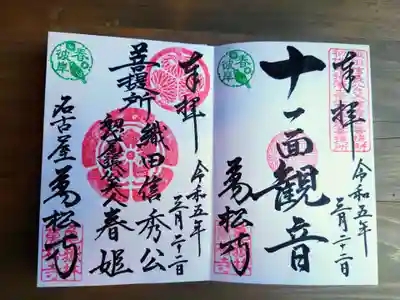 奉拝
令和五年
三月二十二日
十一面観音
春の彼岸
萬松寺
奉拝
令和五年
三月二十二日
菩提所
織田信秀公
夫人春姫
春の彼岸
名古屋 萬松寺